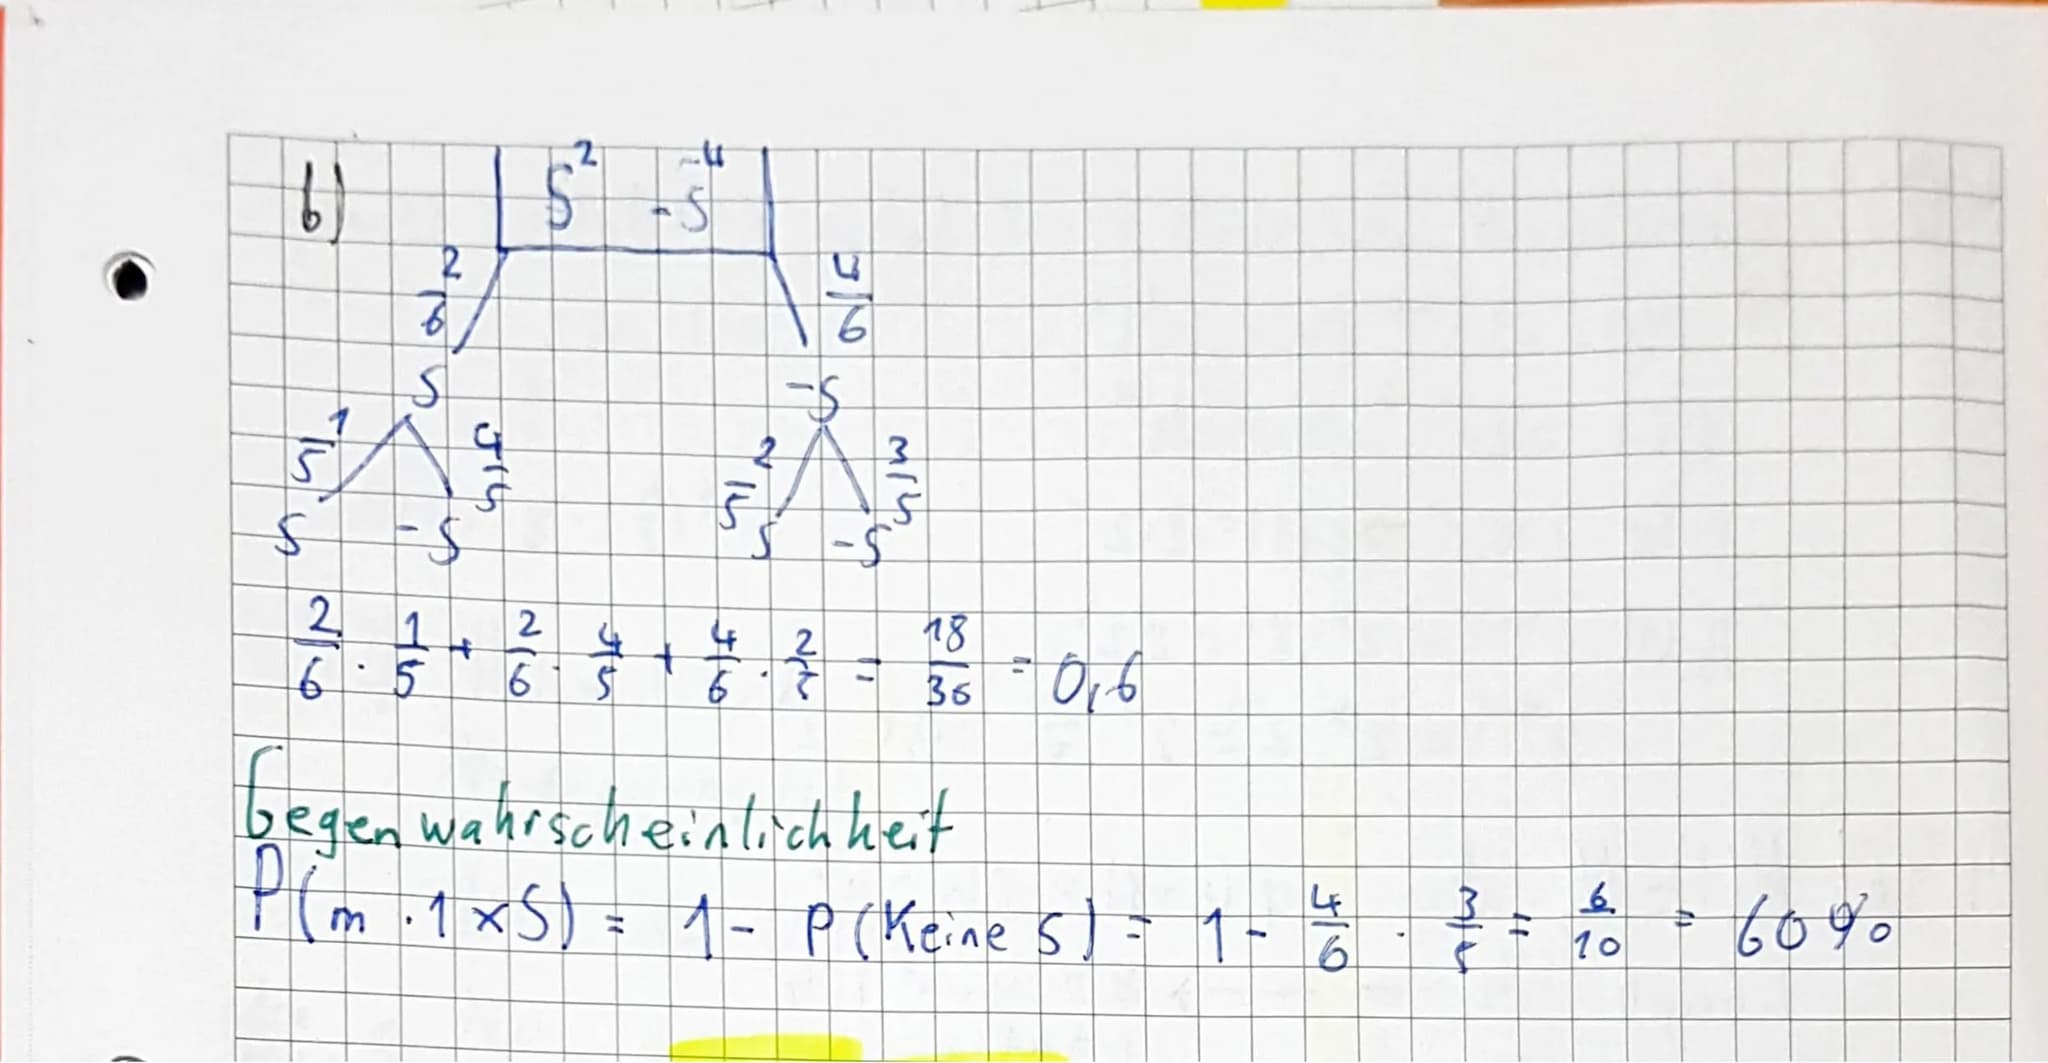 b)
S² -S⁻⁴
2/6 4/6
S -S
1/5 4/5 2/5 3/5
S -S S -S
2/6 · 1/5 + 2/6 · 4/5 + 4/6 · 2/5 = 18/36 = 0,6
Gegenwahrscheinlichkeit
P(m.1xS) = 1- P(Keine S) = 1- 4/6 · 3/5 = 6/10 = 60%